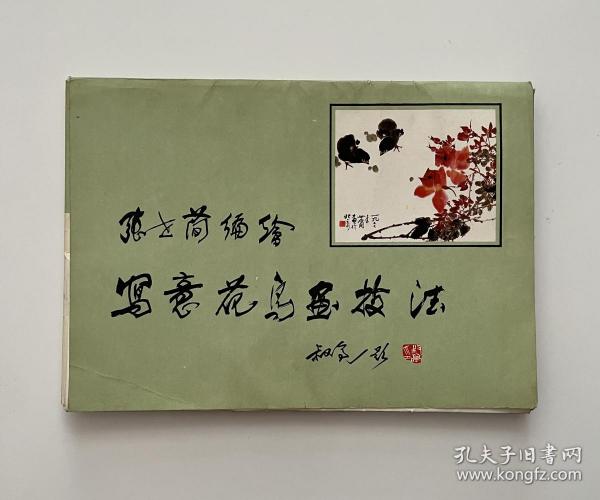 張士簡編繪
寫意花鳥畫技法
叔亮題
孔夫子旧书网
www.kongfz.com